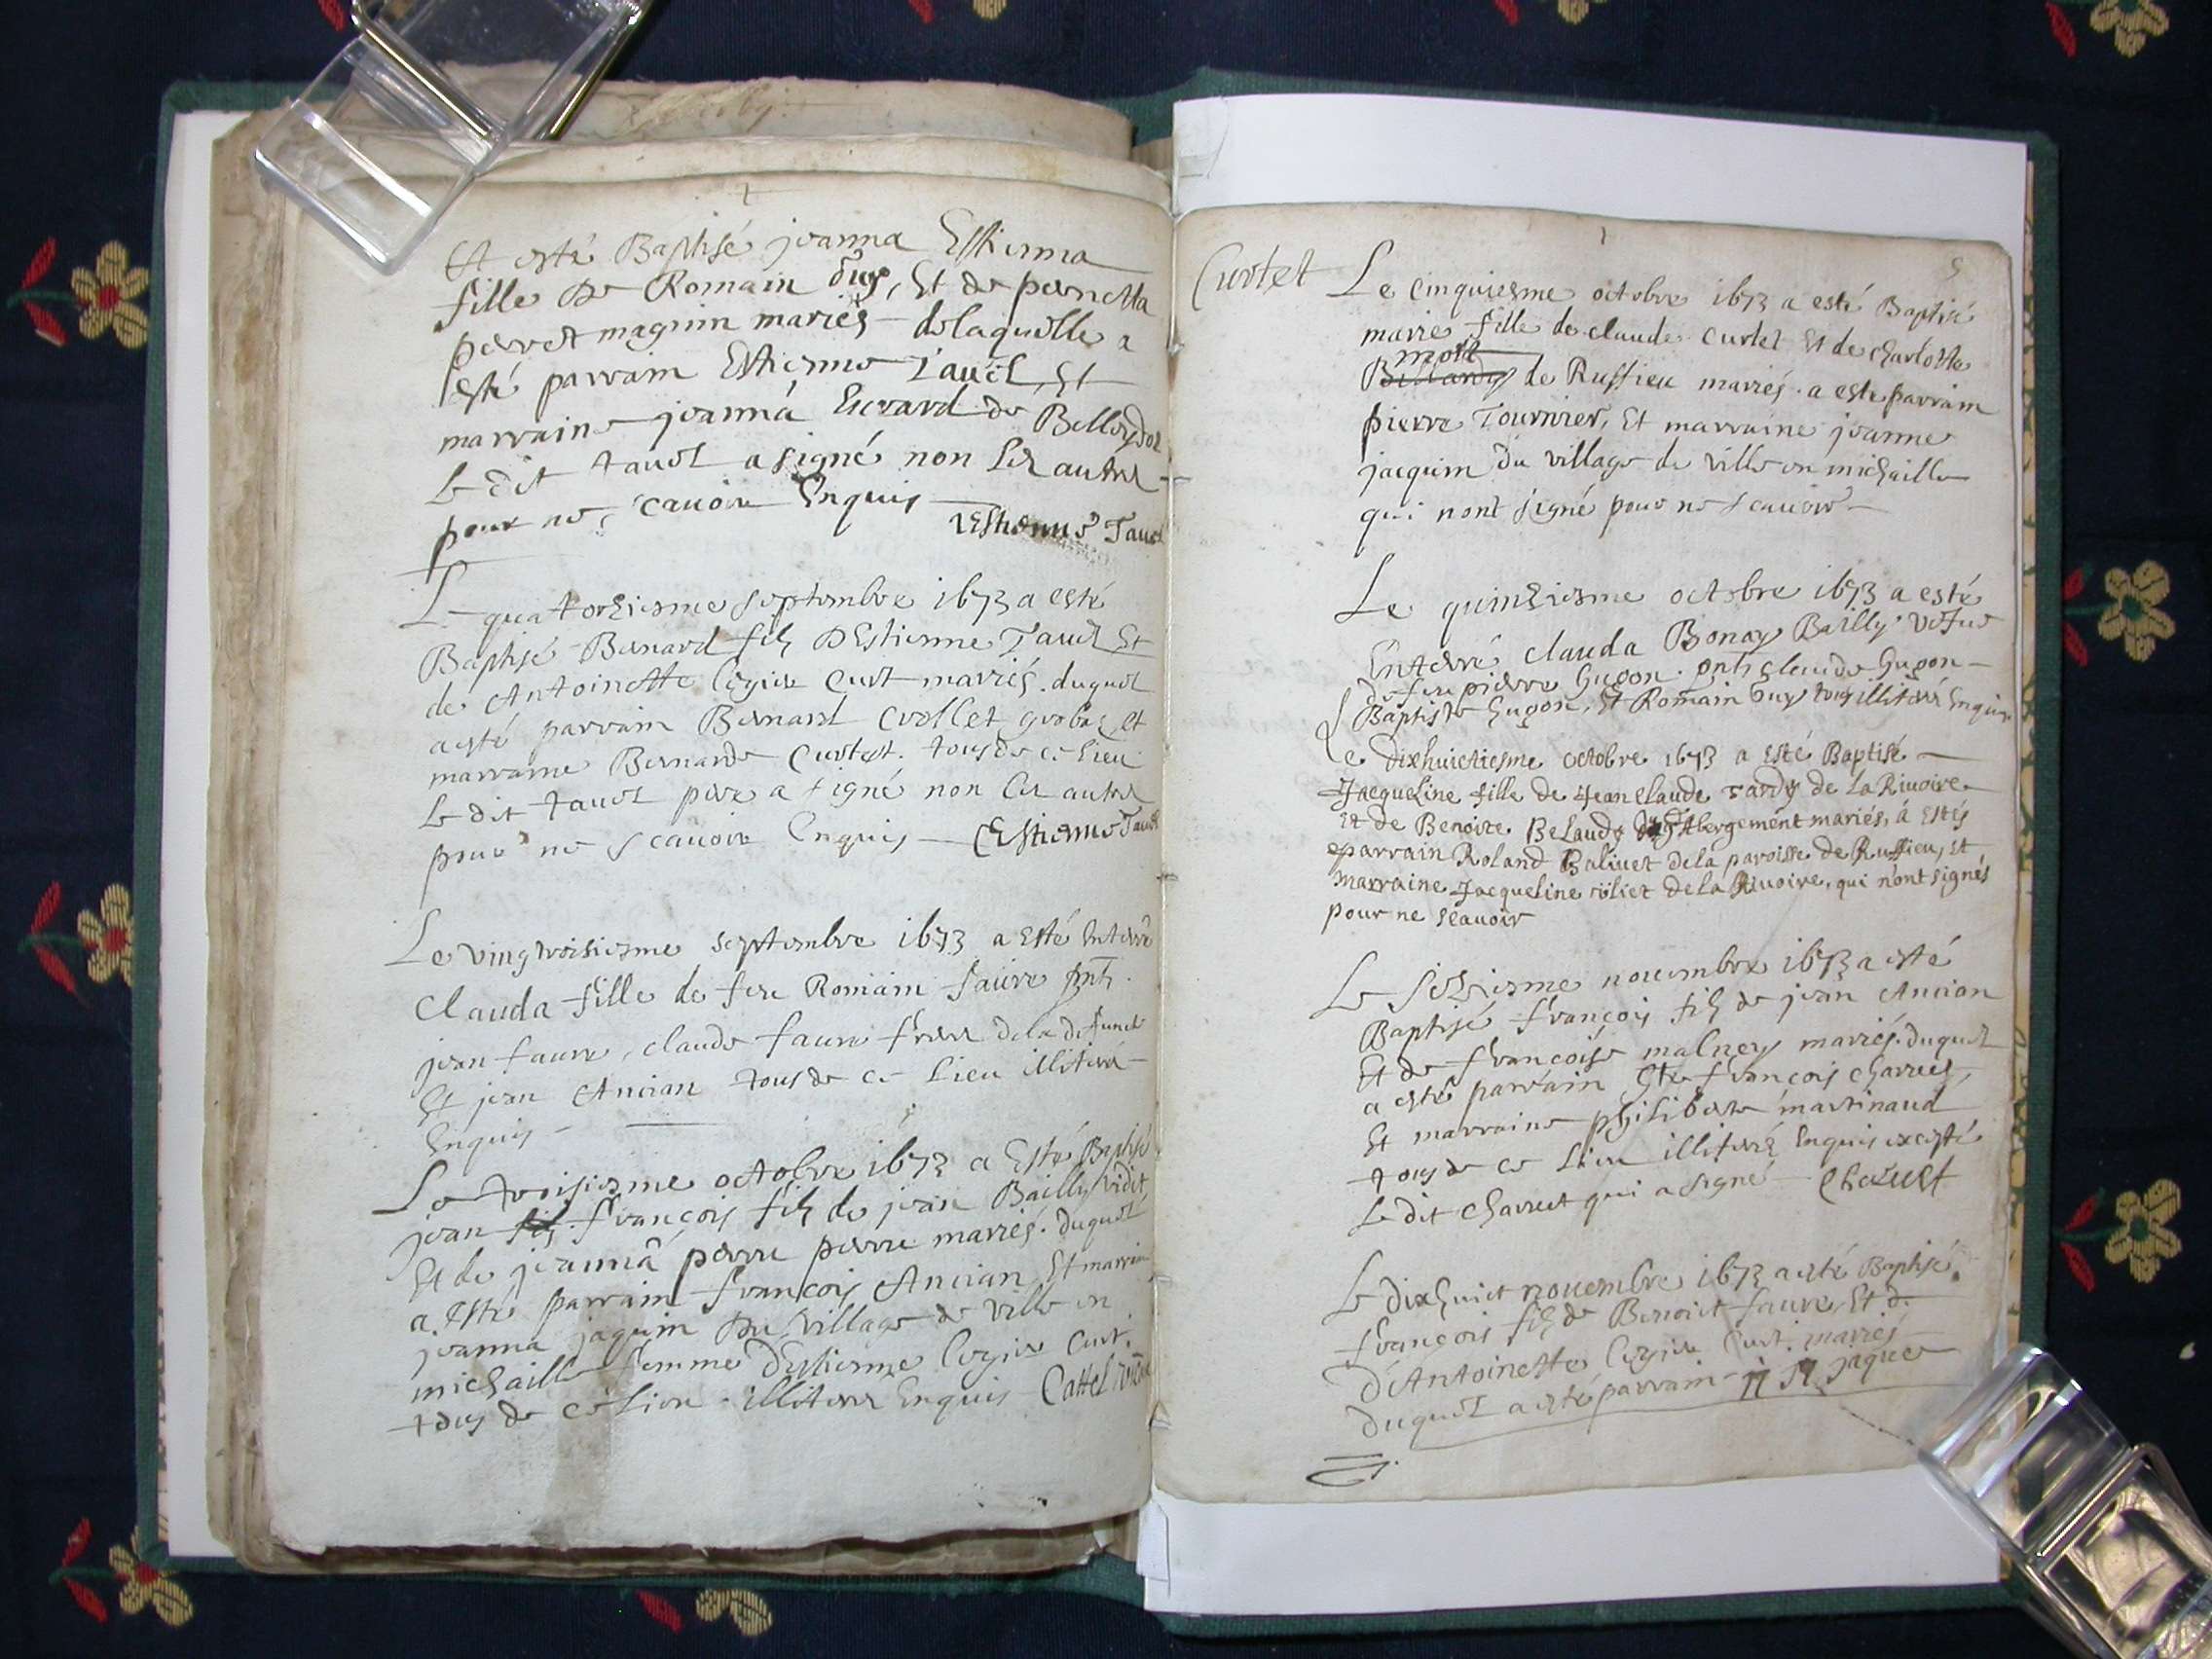 A esté Baptisé joanna Estienna
fille De Romain Duy, Et de pernetta
perret magnin mariés de laquelle a
esté parrain Estienne Tavel, Et
marraine joanna Evrard de Belleydou
Le dit tavel a signé non les autres
pour ne scavoir Enquis
Estienne Tavel
Le quatorziesme septembre 1673 a esté
Baptisé Bernard filz D'Estienne Tavel Et
de Antoinette Curt mariés. duquel
a esté parrain Bernard Crollet grobas et
marraine Bernarde Curtet. tous de ce lieu
Le dit tavel pere a signé non les autres
pour ne scavoir Enquis Estienne Tavel
Le vingtroisiesme septembre 1673 a Esté Enterré
Clauda fille de feu Romain faure pnts.
jean faure, claude faure frere de la defuncte
Et jean Ancian tous de ce Lieu illiterés
Enquis
Le troisiesme octobre 1673 a Esté Baptisé
jean fils françois filz de jean Bailly
Et de jeanna perru perru mariés. duquel
a Esté parrain françois Ancian Et marraine
joanna jaquin Du village de ville en
michaille femme d'Estienne Curt.
tous de ce Lieu. illiterés Enquis
Curtet
5
Le cinquiesme octobre 1673 a esté Baptisé
marie fille de claude curtet Et de charlotte
mort
de Ruffieu mariés. a esté parrain
pierre Tournier, Et marraine joanne
jacquin du village de ville en michaille
qui nont signé pour ne scavoir
Le quinziesme octobre 1673 a esté
Enterré clauda Bonay Bailly vefue
de feu pierre Gugon. pnts claude Gugon
Baptiste Gugon, Et Romain Duy tous illiterés Enquis
Le dixhuictiesme octobre 1673 a Esté Baptisé
Jacqueline fille de Jean claude Tardy de La Rivoire
Et de Benoite Belaudy d'Abergement mariés, à Estés
parrain Roland Balivet de la paroisse de Ruffieu, Et
marraine Jacqueline de la Rivoire, qui n'ont signés
pour ne scavoir
Le seziesme novembre 1673 a esté
Baptisé françois filz de jean Ancian
Et de françoise malney mariés. duquel
a esté parrain françois charvet,
Et marraine philiberte martinaud
tous de ce Lieu illiterés Enquis excepté
Le dit charvet qui a signé Charvet
Le dixhuict novembre 1673 a esté Baptisé
françois filz de Benoict faure, Et d.
d'Antoinette Curt. mariés
duquel a esté parrain jaques